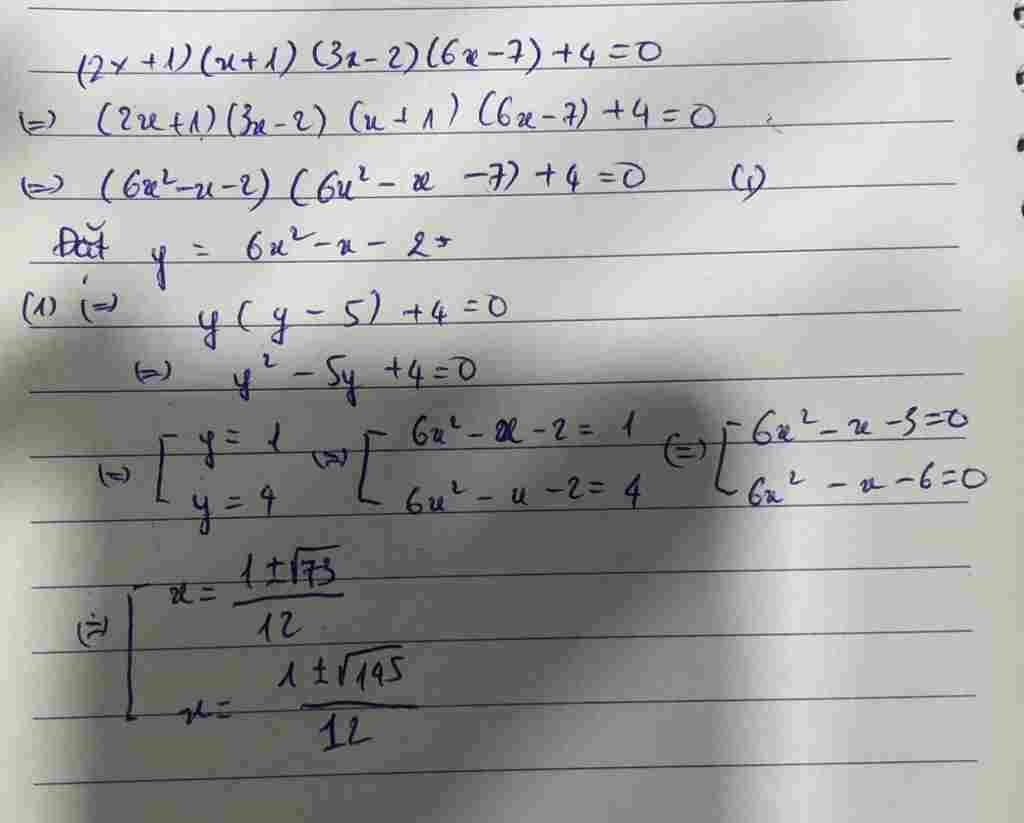 (2x+1)(x+1)(3x-2)(6x-7)+4=0
(=) (2x+1)(3x-2)(x+1)(6x-7)+4=0
(=) (6x²-x-2)(6x²-x-7)+4=0 (1)
Đặt y = 6x²-x-2
(1) (=) y(y-5)+4=0
(=) y²-5y+4=0
(=) [ y=1 (=) [ 6x²-x-2=1 (=) [ 6x²-x-3=0
y=4 6x²-x-2=4 6x²-x-6=0
(=) [ x= (1±√73)/12
x= (1±√145)/12